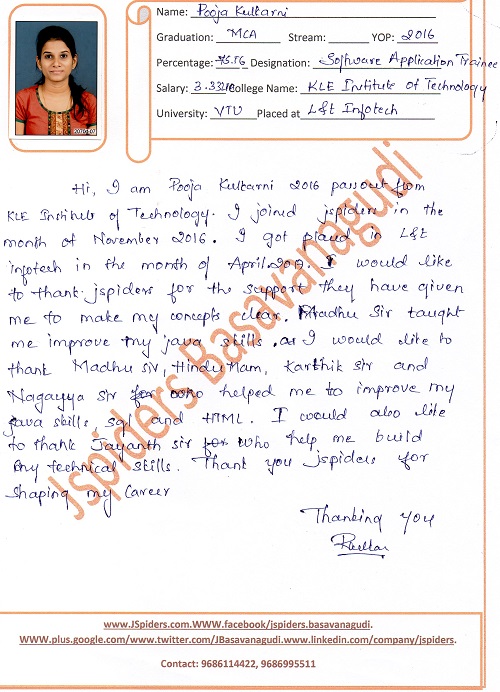 Name: Pooja Kulkarni
Graduation: MCA Stream: YOP: 2016
Percentage: 75.56 Designation: Software Application Trainee
Salary: 3.33 College Name: KLE Institute of Technology
University: VTU Placed at L&t Infotech
Hi, I am Pooja Kulkarni 2016 passout from
KLE Institute of Technology. I joined jspiders in the
month of November 2016. I got placed in L&t
infotech in the month of April.2017. I would like
to thank jspiders for the support they have given
me to make my concepts clear. Madhu Sir taught
me improve my java skills. I would like to
thank Madhu sir, Hindu Mam, Karthik sir and
Nagayya sir who helped me to improve my
java skills, sql and HTML. I would also like
to thank Jayanth sir who help me build
my technical skills. Thank you jspiders for
shaping my career
Thanking you
Jspiders Basavanagudi
www.JSpiders.com.WWW.facebook/jspiders.basavanagudi.
WWW.plus.google.com/www.twitter.com/JBasavanagudi.www.linkedin.com/company/jspiders.
Contact: 9686114422, 9686995511